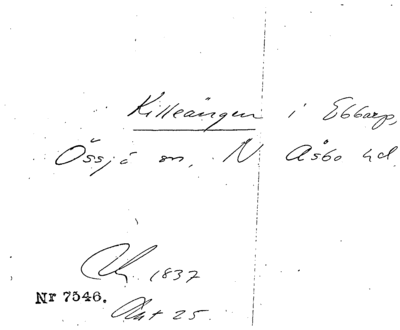 Killeängen i Ebbarp,
Össjö sn, N Åsbo hd
1837
Nr 7546.
Akt 25.